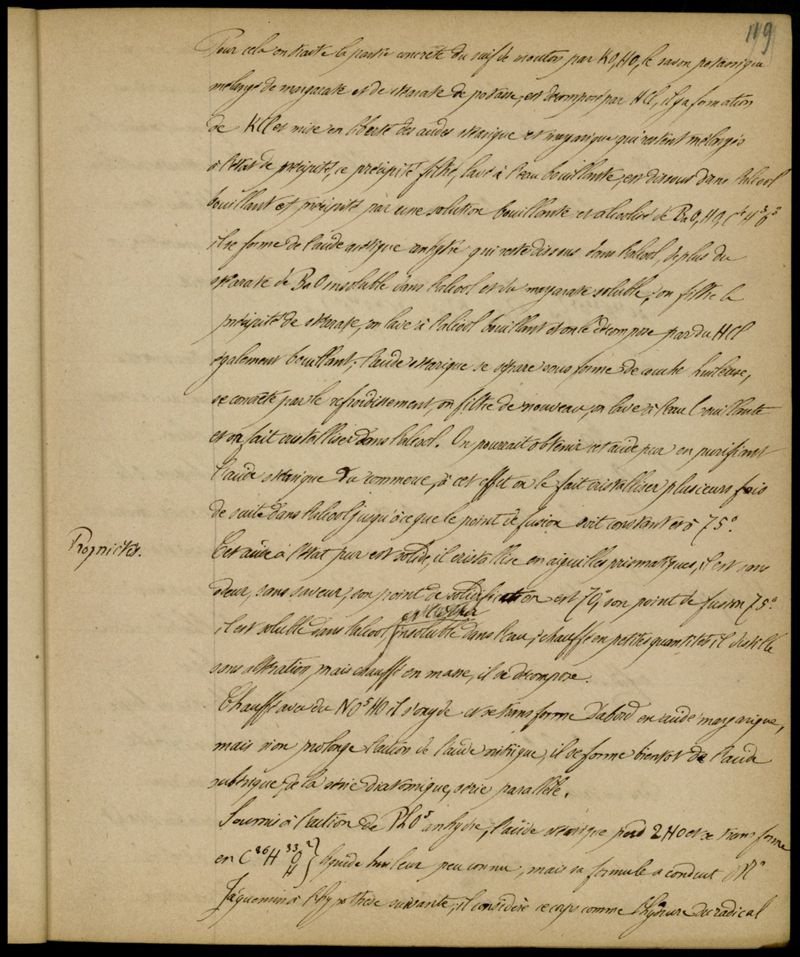 119
Pour cela on traite la partie concrète du suif de mouton par KO,HO, le savon potassique
mélange de margarate et de stéarate de potasse, est décomposé par HCl, il y a formation
de KCl et mise en liberté des acides stéarique et margarique qui restent mélangés
à l'état de précipité, ce précipité filtré, lavé à l'eau bouillante, est dissous dans l'alcool
bouillant et précipité par une solution bouillante et alcoolisée de BaO,HO,C⁴H³O³
il se forme de l'acide acétique qui reste dissous dans l'alcool, de plus du
stéarate de BaO insoluble dans l'alcool et du margarate soluble; on filtre le
précipité de stéarate, on lave à l'alcool bouillant et on le décompose par du HCl
également bouillant; l'acide stéarique se sépare sous forme de couche huileuse,
se concrète par le refroidissement, on filtre de nouveau, on lave à l'eau bouillante
et on fait cristalliser dans l'alcool. On pourrait obtenir cet acide pur en purifiant
l'acide stéarique du commerce, à cet effet on le fait cristalliser plusieurs fois
de suite dans l'alcool jusqu'à ce que le point de fusion soit constant et à 75°.
Propriétés.
Cet acide à l'état pur est solide, il cristallise en aiguilles prismatiques, il est sans
odeur, sans saveur, son point de solidification est 70°, son point de fusion 75°
il est soluble dans l'alcool et l'éther insoluble dans l'eau; chauffé en petites quantités il distille
sans altération, mais chauffé en masse, il se décompose.
Chauffé avec du NO⁵HO il s'oxyde et se transforme d'abord en acide margarique,
mais si on prolonge l'action de l'acide nitrique, il se forme bientôt de l'acide
subérique, de la série diatomique, série parallèle.
Soumis à l'action de PhO⁵ anhydre, l'acide stéarique perd 2HO et se transforme
en C³⁶H³³O²H} liquide huileux peu connu, mais sa formule a conduit Mr
Jacquemin à l'hypothèse suivante, il considère ce corps comme l'hydrure du radical